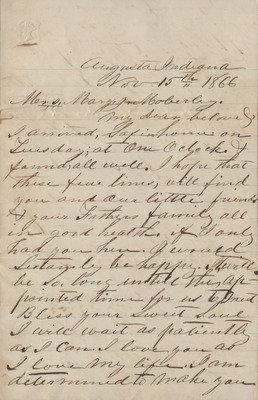 Augusta Indiana
Nov 15th 1866
Mary Moberley.
My dear beloved
I arrived, Safe home on
Tuesday, at One Oclock &
found all well. I hope that
these few lines, will find
you and Our little friends
& your Fathers family all
in good health. if I only
had you here I would
Sertainly be happy. It will
be So long until the Ap
pointed time for us to meet
Bless your Sweet Soul
I will wait as patiently
as I can. I love you as
I love my life. I am
determined to make you